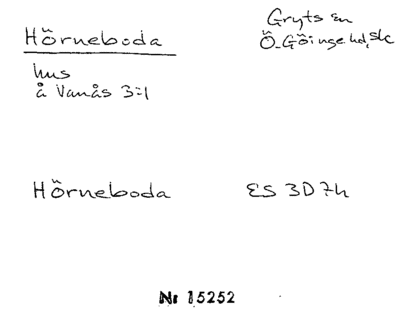 Hörneboda
Gryts sn
Ö. Göinge hd, Skå
hus
å Vanås 3:1
Hörneboda
ES 3D7h
Nr 15252